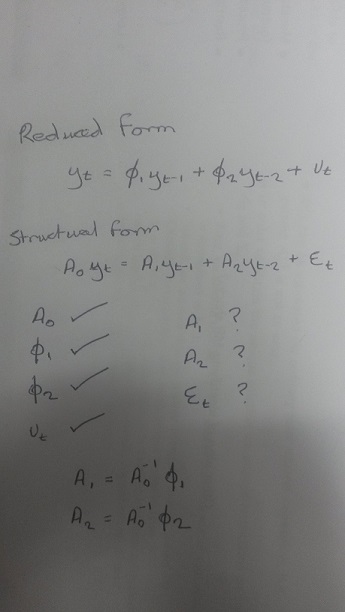 Reduced Form
yₜ = ϕ₁yₜ₋₁ + ϕ₂yₜ₋₂ + Uₜ
Structural form
A₀yₜ = A₁yₜ₋₁ + A₂yₜ₋₂ + Ɛₜ
A₀ ✓ A₁ ?
ϕ₁ ✓ A₂ ?
ϕ₂ ✓ Ɛₜ ?
Uₜ ✓
A₁ = A₀⁻¹ϕ₁
A₂ = A₀⁻¹ϕ₂